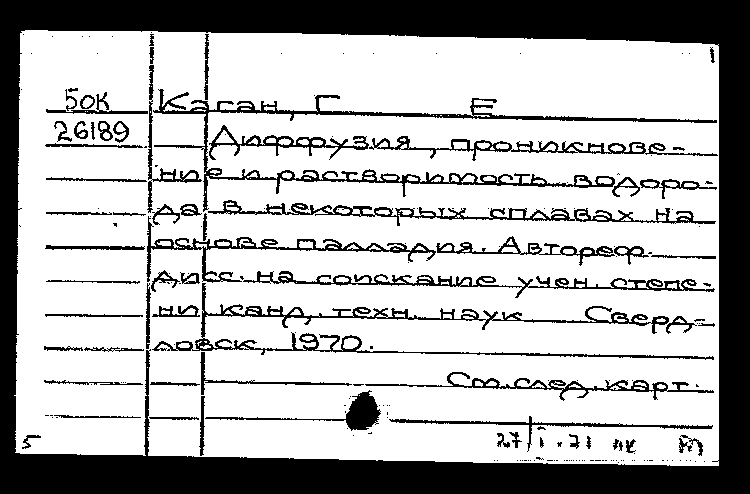 1
50К Каган, Г Е
26189 Диффузия, проникнове-
ние и растворимость водоро-
да в некоторых сплавах на
основе палладия. Автореф.
дисс. на соискание учен. степе-
ни канд. техн. наук Сверд-
ловск, 1970.
См. след. карт.
5 27/I.71 пк